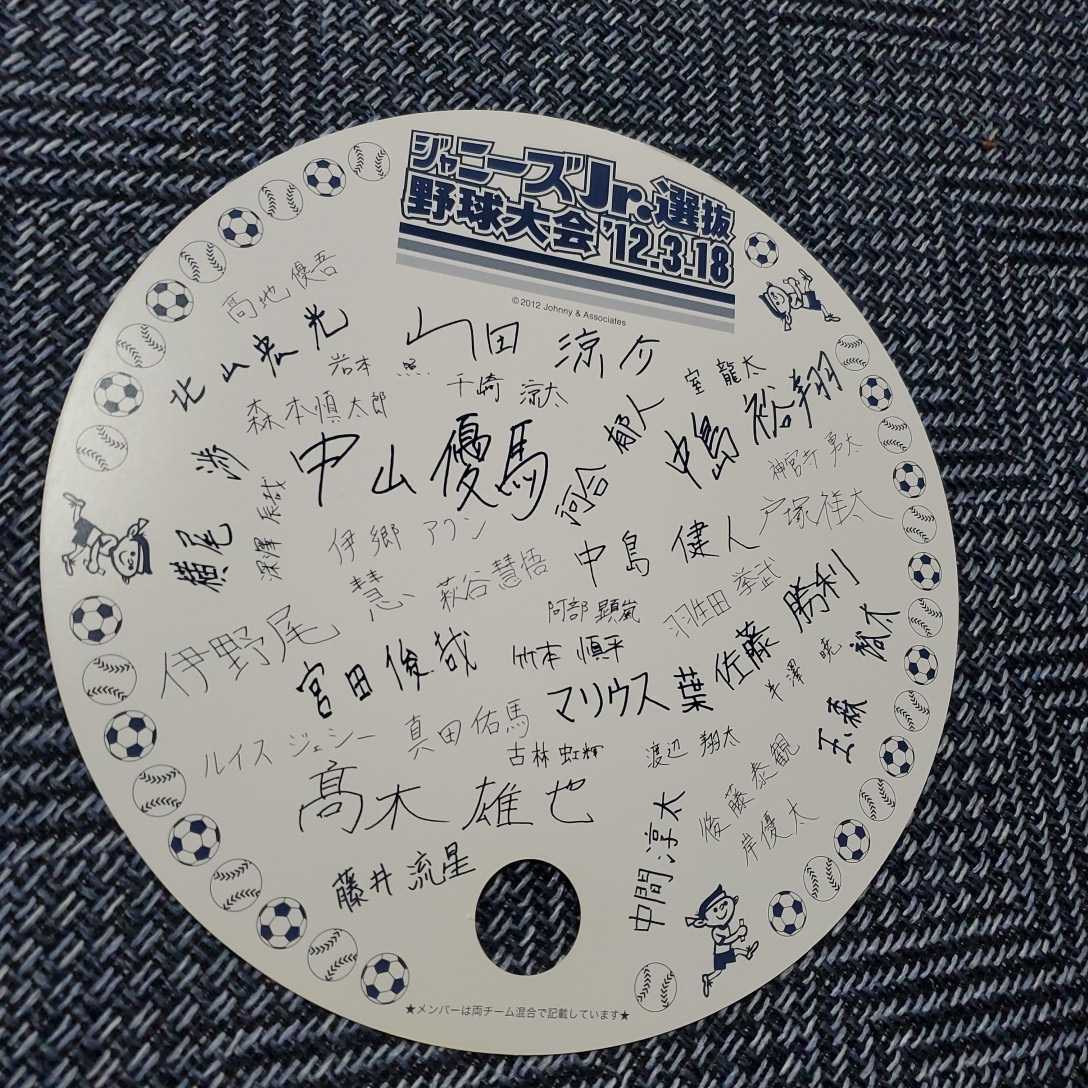 ジャニーズJr.選抜
野球大会 '12.3.18
©2012 Johnny & Associates
高地優吾
北山宏光
山田 涼介
岩本 照
千崎 涼太
室 龍太
森本慎太郎
郁人
河合
中島 裕翔
渉
横尾
中山 優馬
神宮寺 勇太
深澤 辰哉
伊郷 アクン
戸塚祥太
中島 健人
萩谷慧悟
伊野尾 慧
阿部 顕嵐
羽生田 挙武
勝利
佐藤
宮田俊哉
竹本 慎平
裕太
玉森
半澤 暁
マリウス 葉
真田佑馬
ルイス ジェシー
古林 虹輝
渡辺 翔太
高木 雄也
後藤泰観
岸優太
中間淳太
藤井 流星
★メンバーは両チーム混合で記載しています★